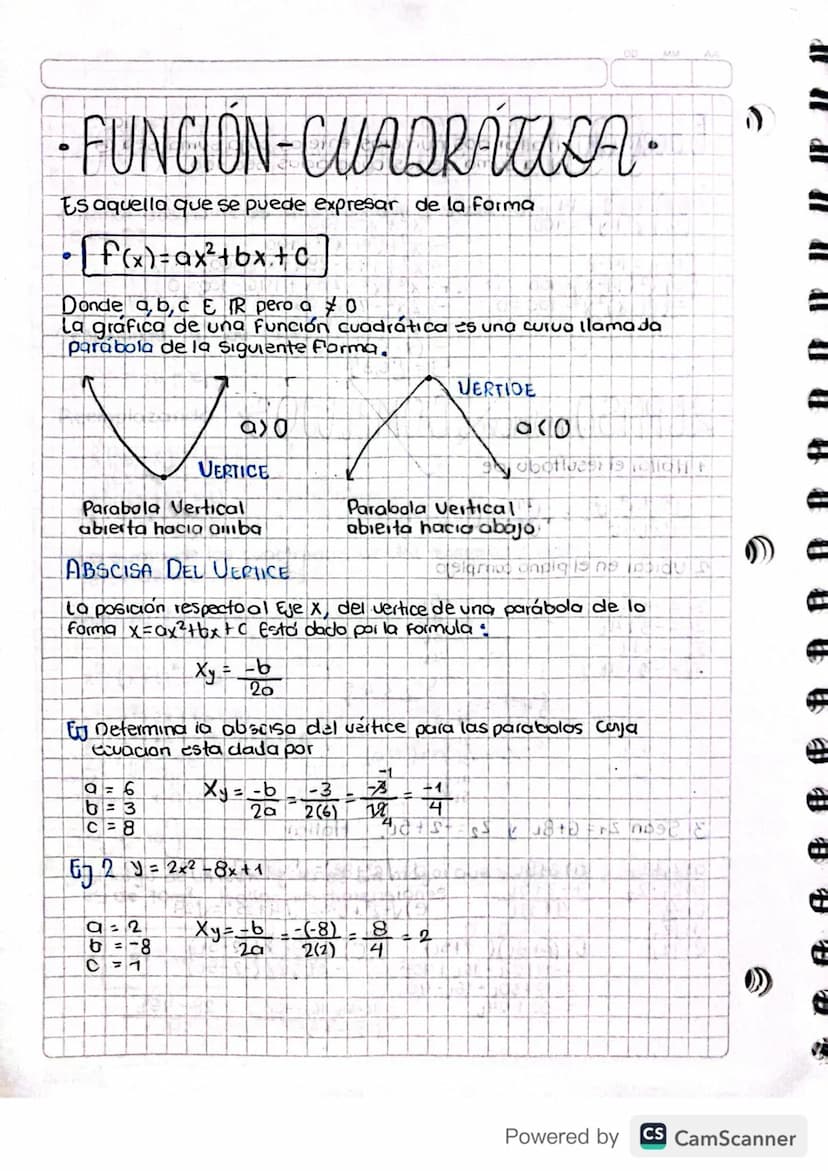 DD MM AA
• FUNCIÓN-CUADRÁTICA •
Es aquella que se puede expresar de la forma
• f(x)=ax²+bx+c
Donde a,b,c E IR pero a ≠ 0
La gráfica de una función cuadrática es una curva llamada
parábola de la siguiente forma.
VERTIDE
a>0
a<0
VERTICE
Parabola Vertical
abierta hacia arriba
Parabola Vertical
abierta hacia abajo
ABSCISA DEL VERTICE
La posición respecto al Eje X, del vertice de una parábola de la
forma x=ax²+bx+c Está dado por la formula:
Xy = -b/2a
Ej Determina la abscisa del vértice para las parabolas cuya
ecuacion esta dada por
a = 6
b = 3
c = 8
Xy = -b/2a = -3/2(6) = -3/12 = -1/4
-1
4
Ej 2 y = 2x² -8x+1
a = 2
b = -8
c = 1
Xy = -b/2a = -(-8)/2(2) = 8/4 = 2
Powered by CS CamScanner